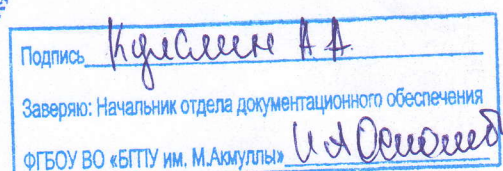 Подпись А А
Заверяю: Начальник отдела документационного обеспечения
ФГБОУ ВО «БГПУ им. М.Акмуллы» И А